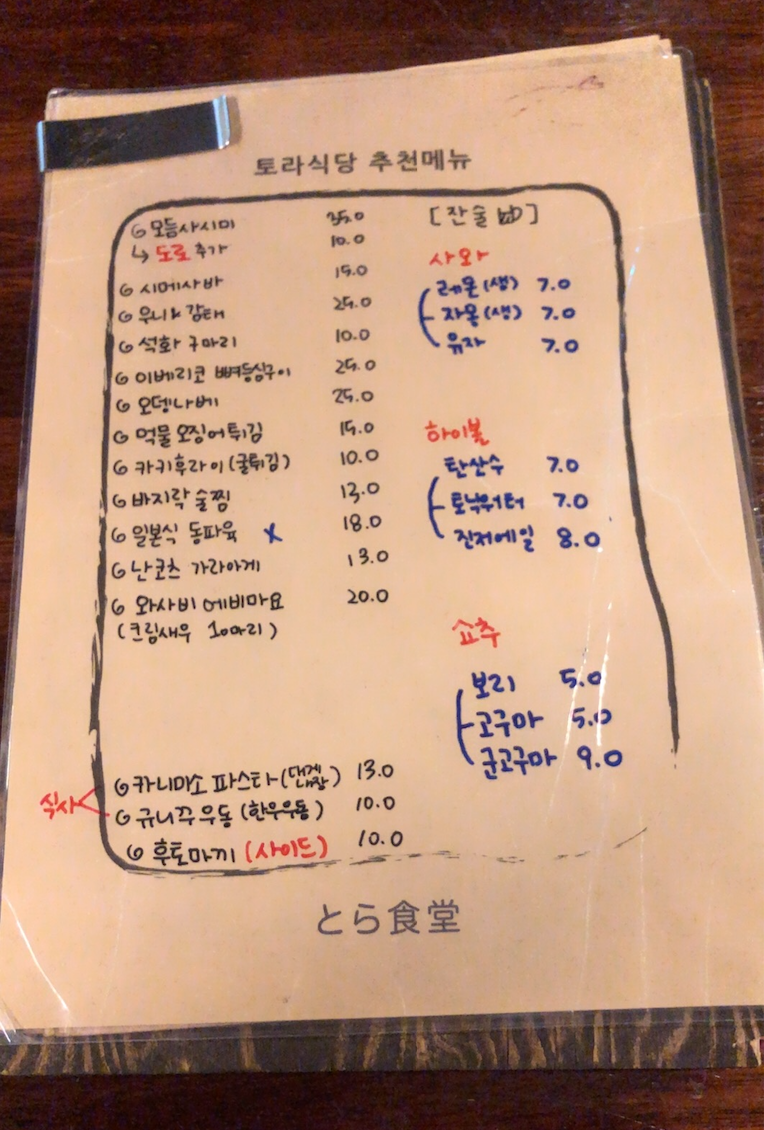 토라식당 추천메뉴
모듬사시미 35.0
↳ 도로 추가 10.0
시메사바 15.0
우니 & 감태 25.0
석화 구마리 10.0
이베리코 뼈등심구이 25.0
오뎅나베 25.0
먹물오징어튀김 15.0
카키후라이 (굴튀김) 10.0
바지락 술찜 13.0
일본식 동파육 x 18.0
난코츠 가라아게 13.0
와사비 에비마요 20.0
(크림새우 10마리)
식사
카니미소 파스타 (대게내장) 13.0
규니꾸 우동 (한우우동) 10.0
후토마끼 (사이드) 10.0
[잔술]
사와
레몬(생) 7.0
자몽(생) 7.0
유자 7.0
하이볼
탄산수 7.0
토닉워터 7.0
진저에일 8.0
쇼츄
보리 5.0
고구마 5.0
군고구마 9.0
とら食堂